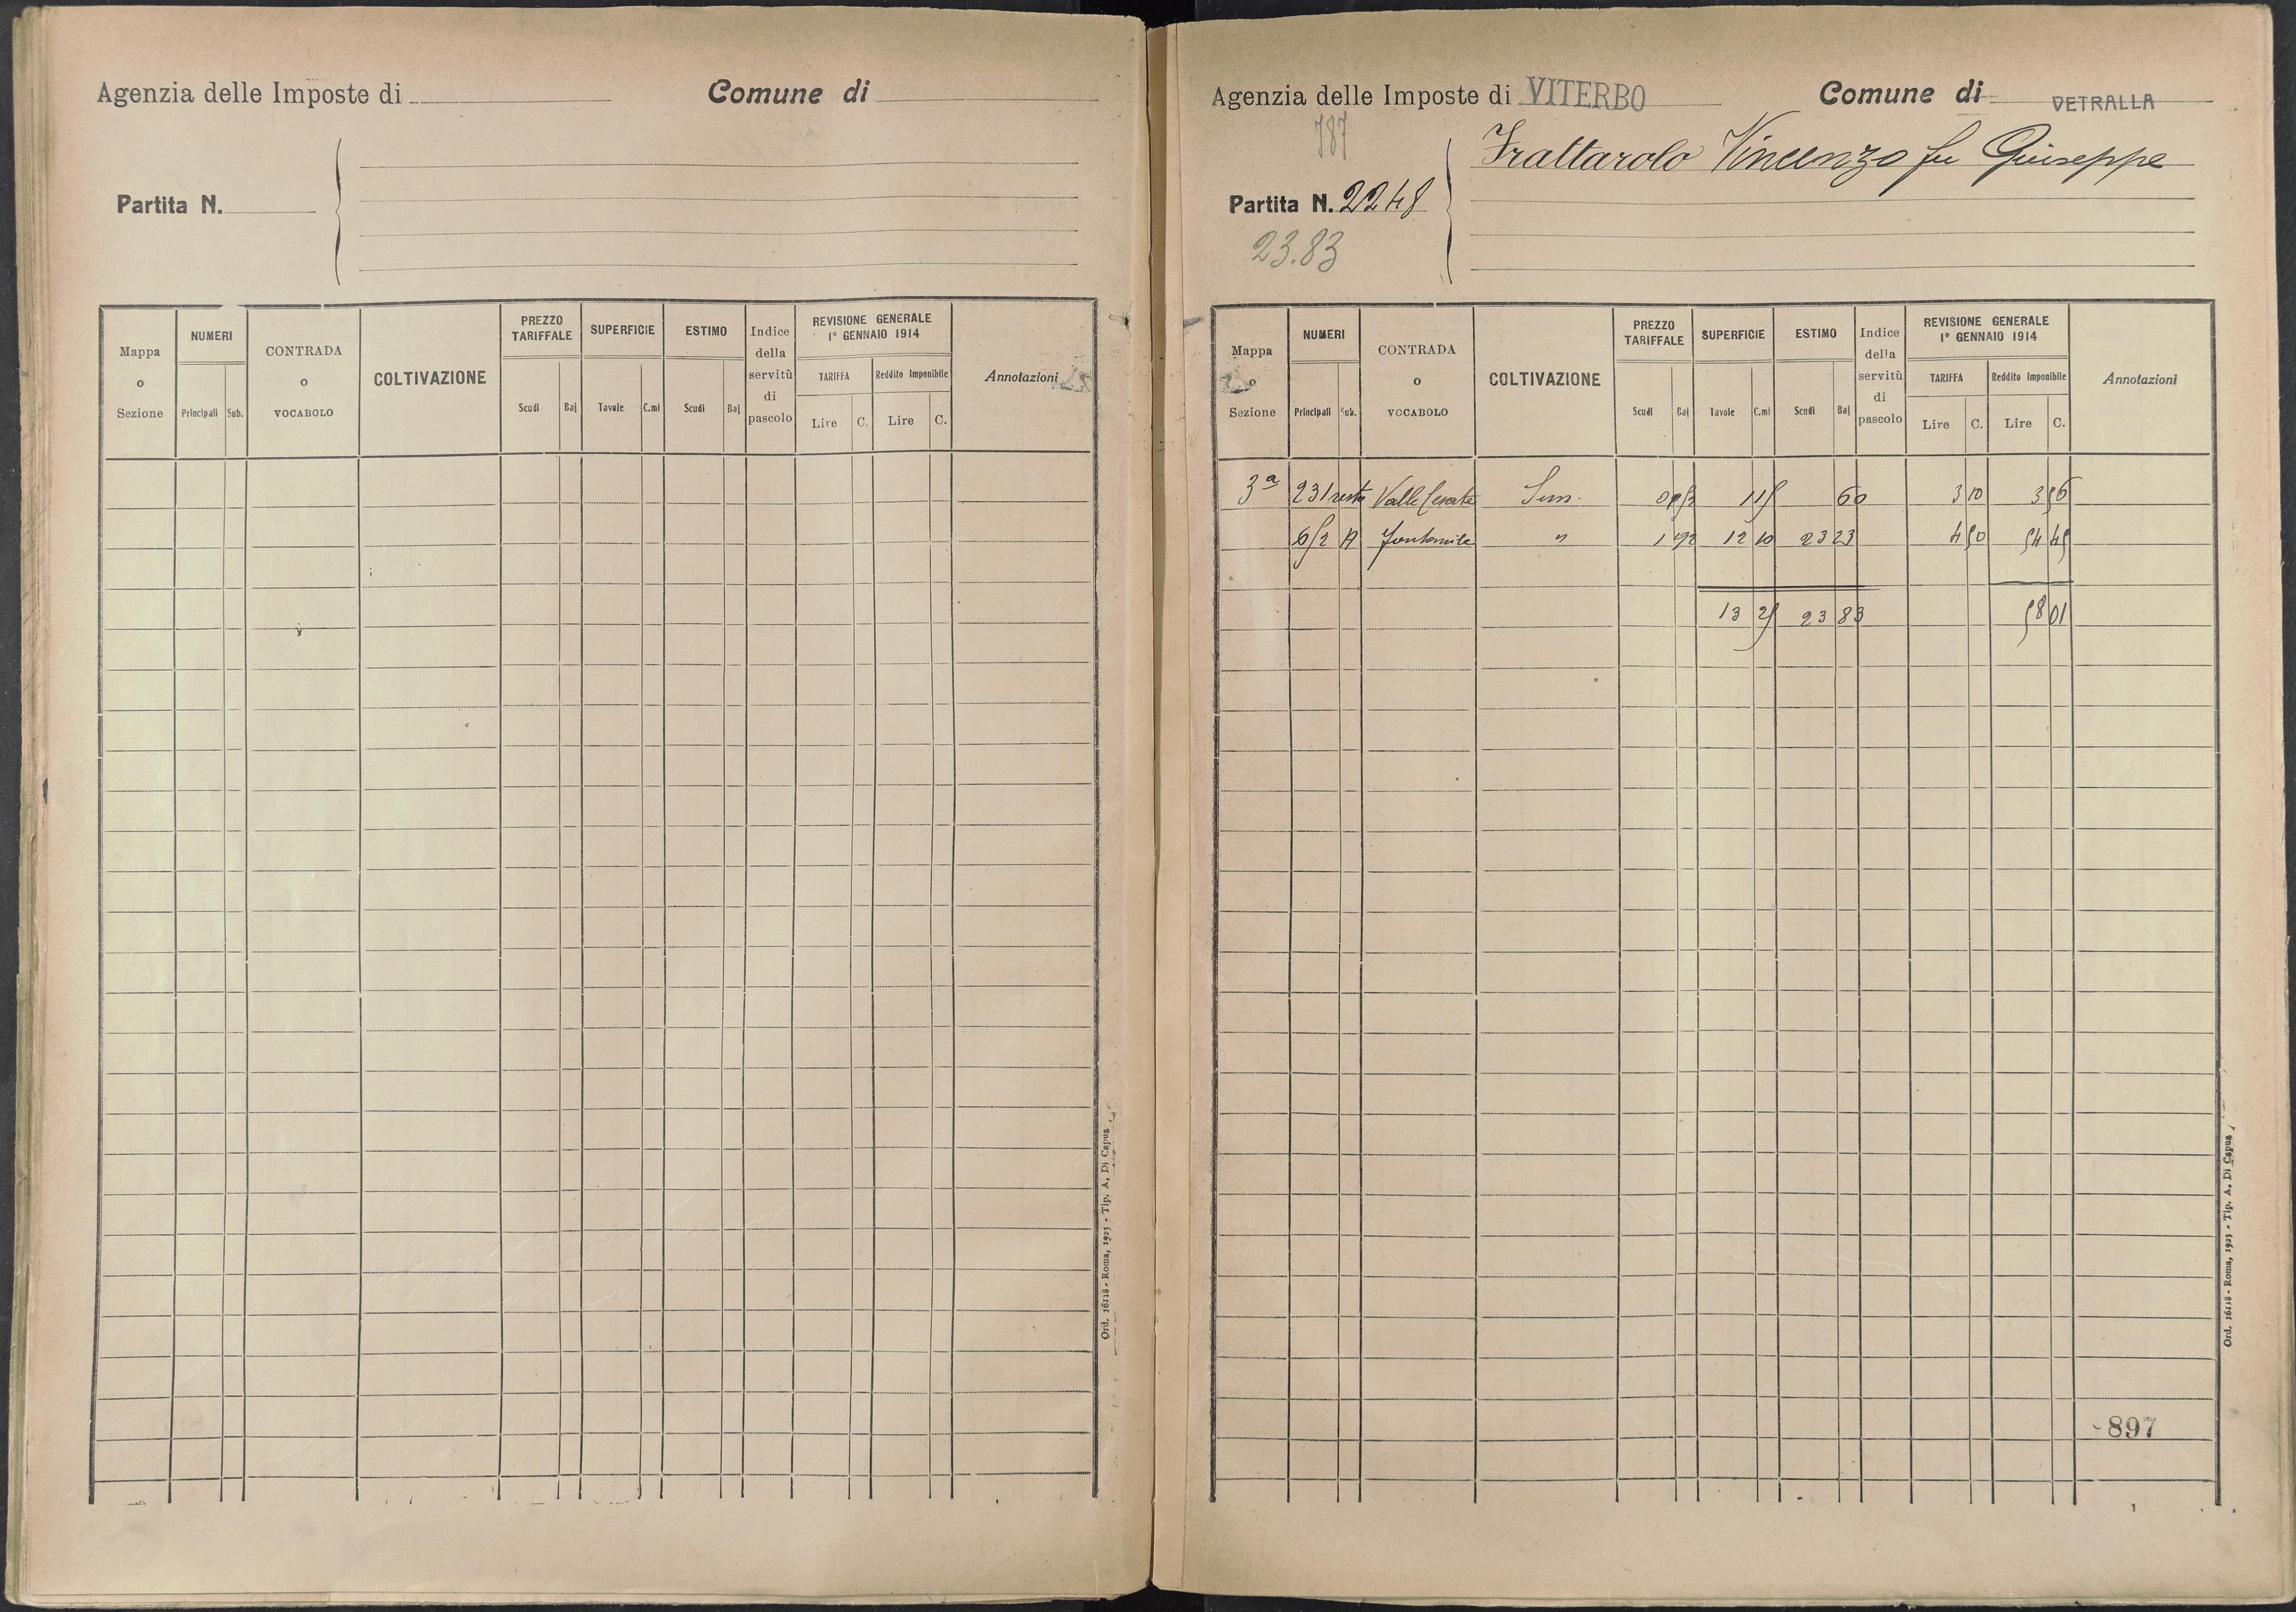 Agenzia delle Imposte di
Comune di
Partita N.
Mappa o Sezione
NUMERI
Principali Sub.
CONTRADA o VOCABOLO
COLTIVAZIONE
PREZZO TARIFFALE
Scudi Baj
SUPERFICIE
Tavole C.mi
ESTIMO
Scudi Baj
Indice della servitù di pascolo
REVISIONE GENERALE
1° GENNAIO 1914
TARIFFA
Lire C.
Reddito Imponibile
Lire C.
Annotazioni
Ord. 16118 - Roma, 1923 - Tip. A. Di Capua
Agenzia delle Imposte di VITERBO
Comune di VETRALLA
787
Frattarolo Vincenzo fu Giuseppe
Partita N. 2248
23.83
Mappa o Sezione
NUMERI
Principali Sub.
CONTRADA o VOCABOLO
COLTIVAZIONE
PREZZO TARIFFALE
Scudi Baj
SUPERFICIE
Tavole C.mi
ESTIMO
Scudi Baj
Indice della servitù di pascolo
REVISIONE GENERALE
1° GENNAIO 1914
TARIFFA
Lire C.
Reddito Imponibile
Lire C.
Annotazioni
3a 231 resto Valle Sem. 1 15 60 3 10 3 56
652 A " 1 92 12 10 23 23 4 50 54 45
13 25 23 83 58 01
897
Ord. 16118 - Roma, 1923 - Tip. A. Di Capua